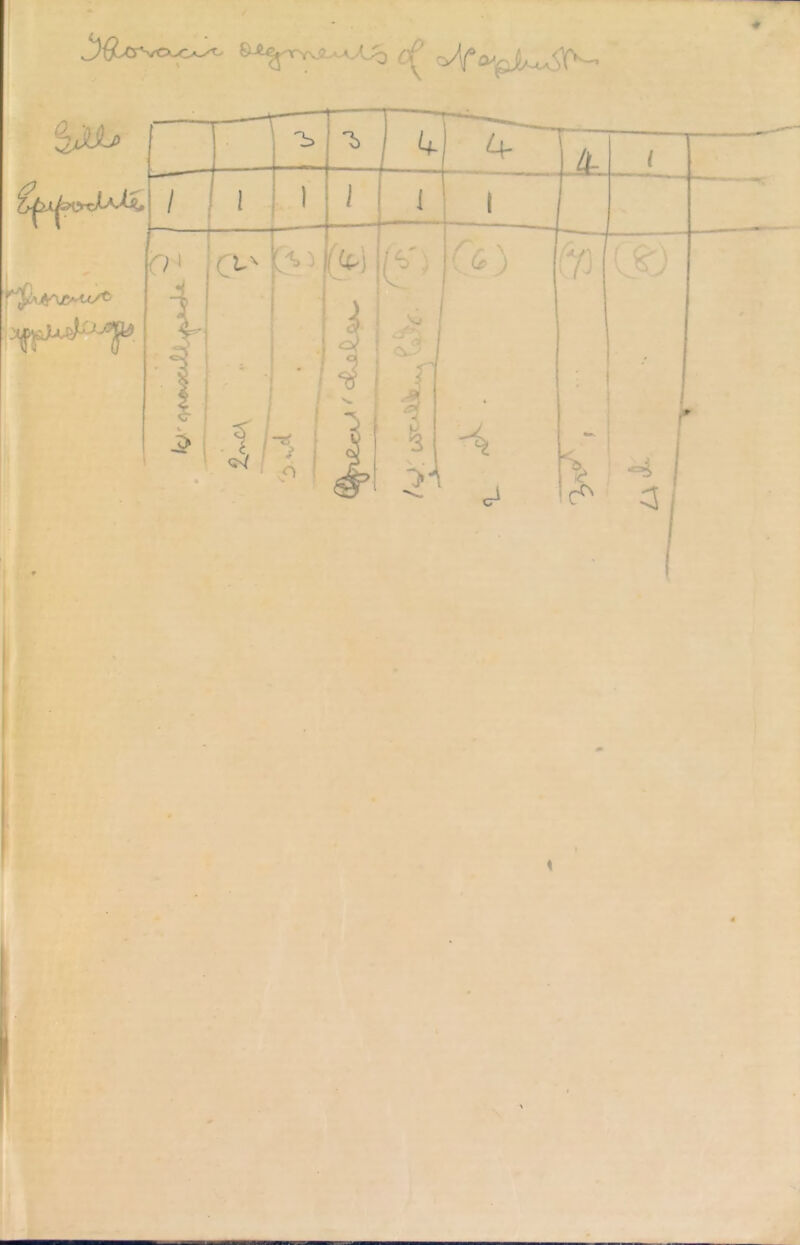 Thoracic segments of Nephrops
Gills 3 3 4 4 4 1
Epipodite 1 1 1 1 1 1
Thoracic (1) (2) (3) (4) (5) (6) (7) (8)
appendages 1st maxillipede 2nd 3rd Great chelae 1st walking legs. 2nd. 3rd. 4th